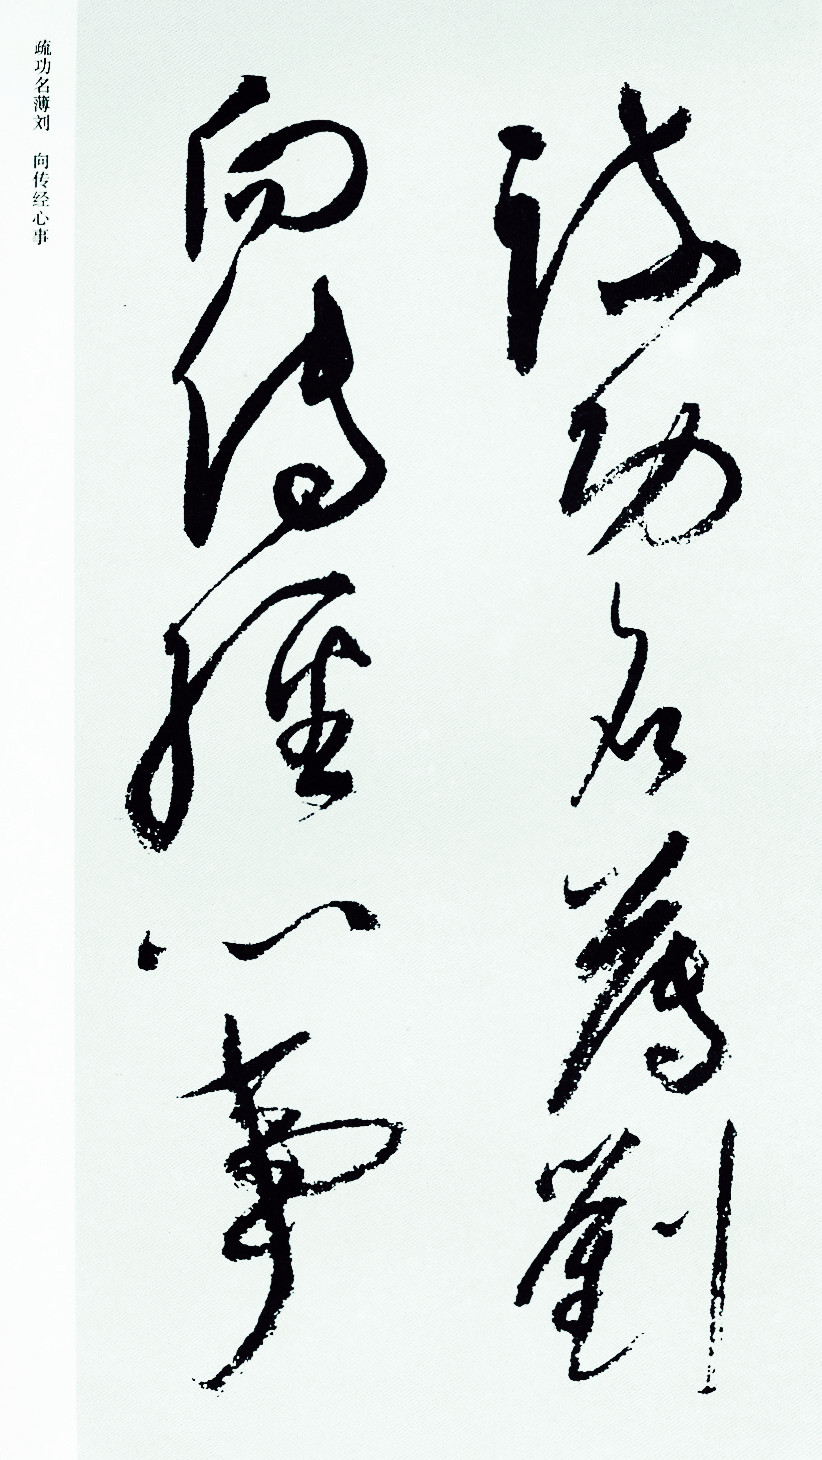 疏功名薄劉
向傳經心事
疏功名薄刘　向传经心事